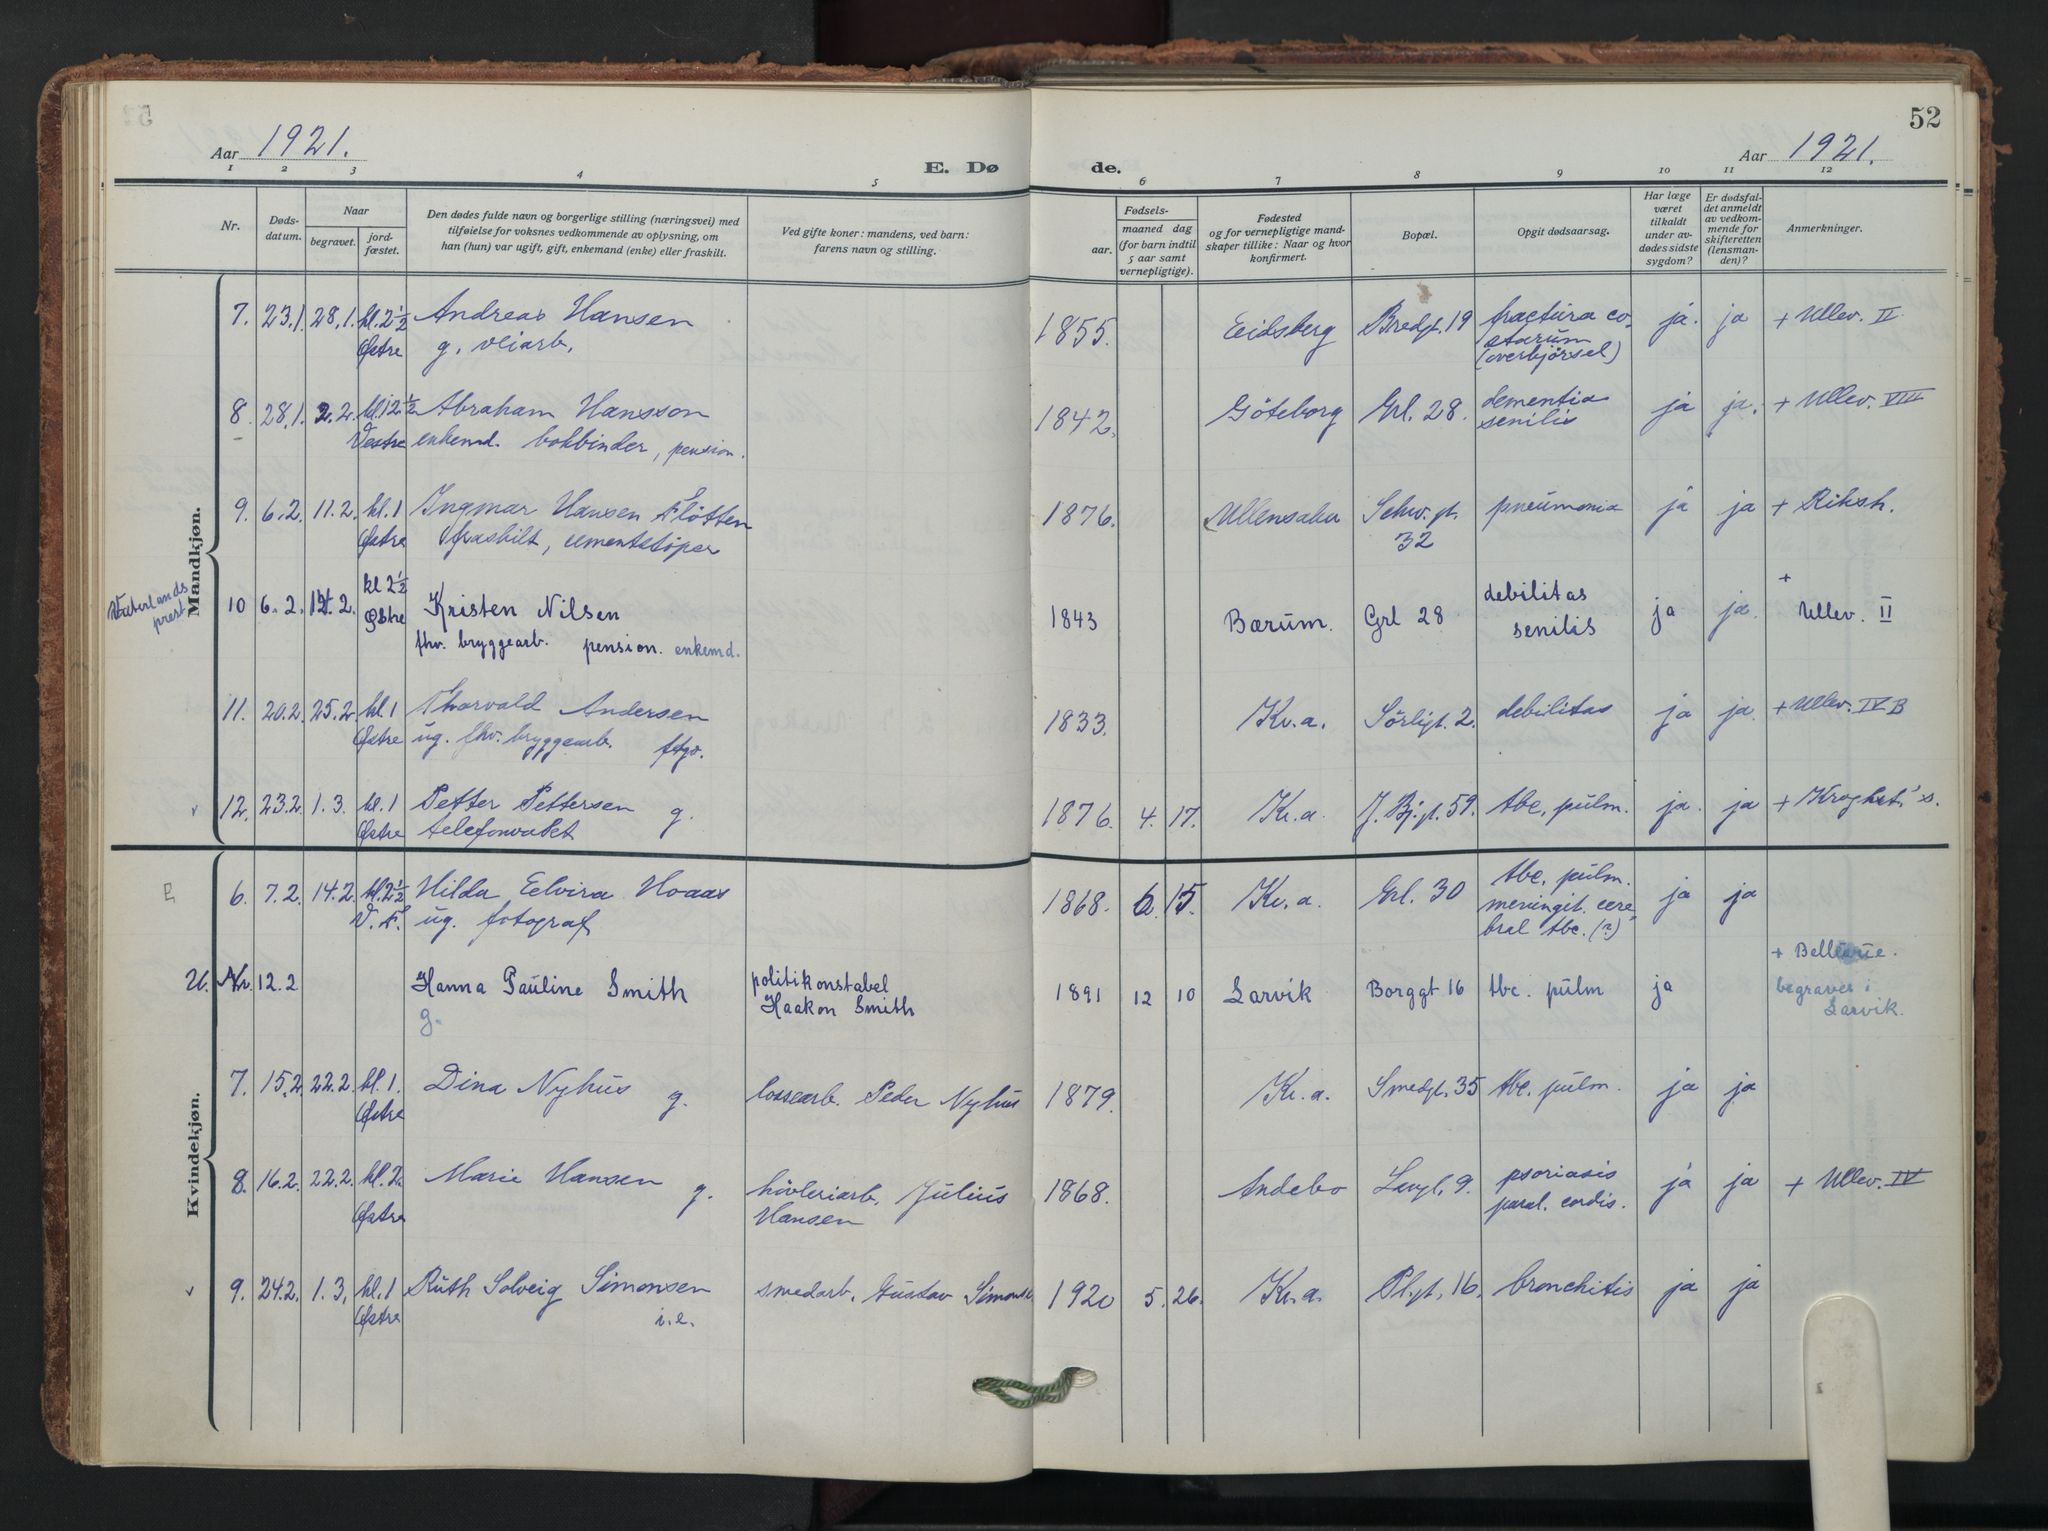 52
Aar 1921.
Aar 1921.
E. Dø
de.
1 2 3 4 5 6 7 8 9 10 11 12
Nr.
Døds-
datum.
Naar
begravet.
jord-
fæstet.
Den dødes fulde navn og borgerlige stilling (næringsvei) med
tilføielse for voksnes vedkommende av oplysning, om
han (hun) var ugift, gift, enkemand (enke) eller fraskilt.
Ved gifte koner: mandens, ved barn:
farens navn og stilling.
Fødsels-
aar.
maaned dag
(for barn indtil
5 aar samt
vernepligtige).
Fødested
og for vernepligtige mand-
skaper tillike: Naar og hvor
konfirmert.
Bopæl.
Opgit dødsaarsag.
Har læge
været
tilkaldt
under av-
dødes sidste
sygdom?
Er dødsfal-
det anmeldt
av vedkom-
mende for
skifteretten
(lensman-
den)?
Anmerkninger.
Mandkjøn.
7. 23.1. 28.1. kl. 2½ Andreas Hansen 1855. Eidsberg Bredgt. 19 fractura co- ja. ja + Ullev. II
Østre g. veiarb. starum
(overkjørsel)
8. 28.1. 2.2. kl. 12½ Abraham Hansson 1842. Göteborg Grl. 28. dementia ja ja. + Ullev. VIII
Vestre enkemd. bokbinder, pension. senilis
9. 6.2. 11.2. kl. 1 Ingmar Hansen Fløtten 1876. Ullensaker Schw. gt. pneumonia ja ja + Riksh.
Østre fraskilt, cementstøper 32
Vaterlands
prest
10 6.2. 12.2. kl 2½ Kristen Nilsen 1843 Bærum. Grl 28 debilitas ja ja. + Ullev. II
Østre fhv. bryggearb. pension. enkemd. senilis
11. 20.2. 25.2 kl. 1 Thorvald Andersen 1833. Kr.a. Sörligt. 2. debilitas ja ja. + Ullev. IV B
Østre ug. fhv. bryggearb. ftgv.
12. 23.2. 1.3. kl. 1 Petter Pettersen g. 1876. 4. 17. Kr.a. J. Bj. gt. 59. tbc. pulm. ja. ja + Kroghst.'s.
Østre telefonvakt
Kvindekjøn.
6. 7.2. 14.2. kl. 2½ Hilda Eelvira Hoaas 1868. 6 15. Kr.a. Grl. 30 tbc. pulm. ja ja
V. K. ug. fotograf meningit. cere-
bral tbc. (?)
U. Nr. 12.2 Hanna Pauline Smith politikonstabel 1891 12 10 Larvik Borggt 16 tbc. pulm ja + Bellevue.
g. Haakon Smith begraves i
Larvik.
7. 15.2 22.2. kl. 1. Dina Nyhus g. lossearb. Peder Nyhus 1879. Kr.a. Smedgt. 35 tbc. pulm. ja ja
Østre
8. 16.2. 22.2. kl. 2. Marie Hansen g. høvleriarb. Julius 1868. Andebo Langl. 9. psoriasis ja ja + Ullev. IV
Østre Hansen paral. cordis.
9. 24.2. 1.3. kl. 1 Ruth Solveig Simonsen smedarb. Gustav Simonse 1920 5. 26. Kr.a. Pl.gt. 16. bronchitis ja ja
Østre i.e.